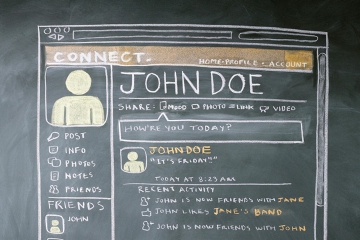 CONNECT.
HOME · PROFILE · ACCOUNT
JOHN DOE
SHARE: MOOD PHOTO LINK VIDEO
HOW'RE YOU TODAY?
POST
INFO
PHOTOS
NOTES
FRIENDS
FRIENDS
JOHN
JOHN DOE
"IT'S FRIDAY"
TODAY AT 8:23 AM
RECENT ACTIVITY
JOHN IS NOW FRIENDS WITH JANE
JOHN LIKES JANE'S BAND
JOHN IS NOW FRIENDS WITH JOHN